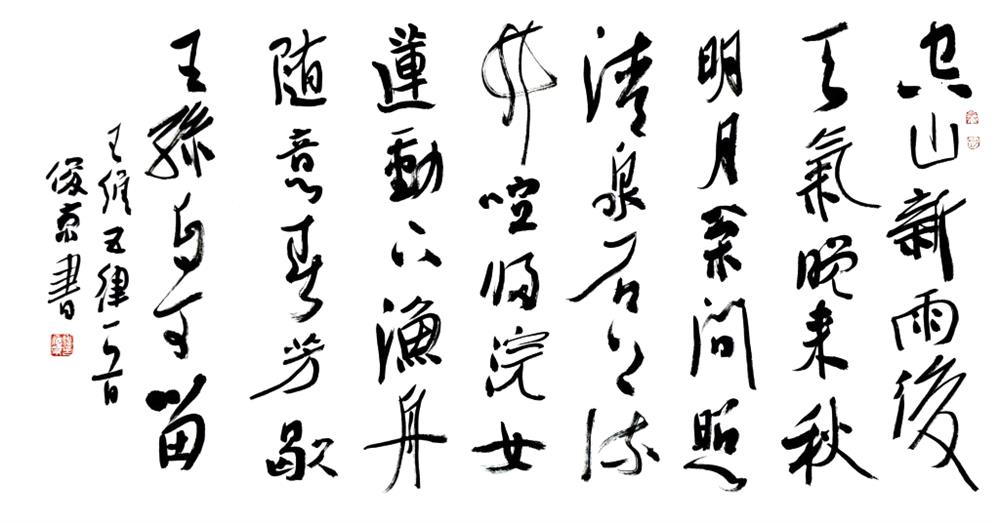 空山新雨後
天氣晚来秋
明月松間照
清泉石上流
竹喧歸浣女
蓮動下漁舟
随意春芳歇
王孫自可留
王維五律一首
俊京書